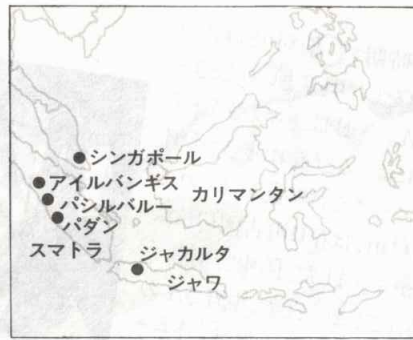 シンガポール
アイルバンギス
カリマンタン
パシルバルー
パダン
スマトラ
ジャカルタ
ジャワ